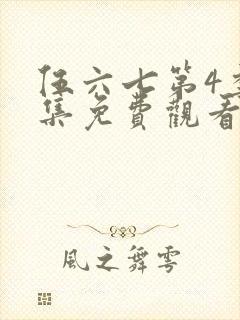 伍六七第4季
集免費觀看
風之舞雩